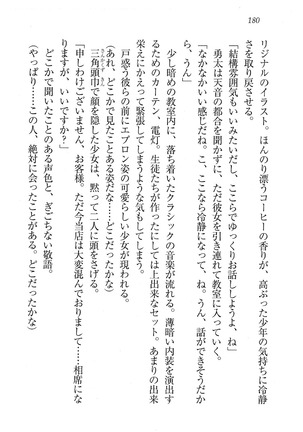 180
リジナルのイラスト。ほんのり漂うコーヒーの香りが、高ぶった少年の気持ちに冷静
さを取り戻させる。
「結構雰囲気もいいみたいだし、ここらでゆっくりお話ししようよ、ね」
勇太は天音の都合を聞かずに、ただ彼女を引き連れて教室に入っていく。
「なかなかいい感じだね。こ、ここなら冷静になって、ね。うん、話ができそうだか
ら、うん」
少し暗めの教室内に、落ち着いたクラシックの音楽が流れる。薄暗い内装を演出す
るためのカーテン、電灯。生徒たちが作ったにしては上出来なセット。あまりの出来
栄えにかえって緊張してしまうような気もしてしまう。
戸惑う彼らの前にエプロン姿の可愛らしい少女が現われる。
（あれ、どこかで見たことある姿だな……どこだったかな）
三角頭巾で顔を隠した少女は、黙って二人に頭をさげる。
「申しわけございません、お客様。ただ今当店は大変混んでおりまして……相席にな
りますが、いいですか？」
どこかで聞いたことのある声色と、ぎごちない敬語。
（やっぱり……この人、絶対に会ったことがある。どこだったかな）